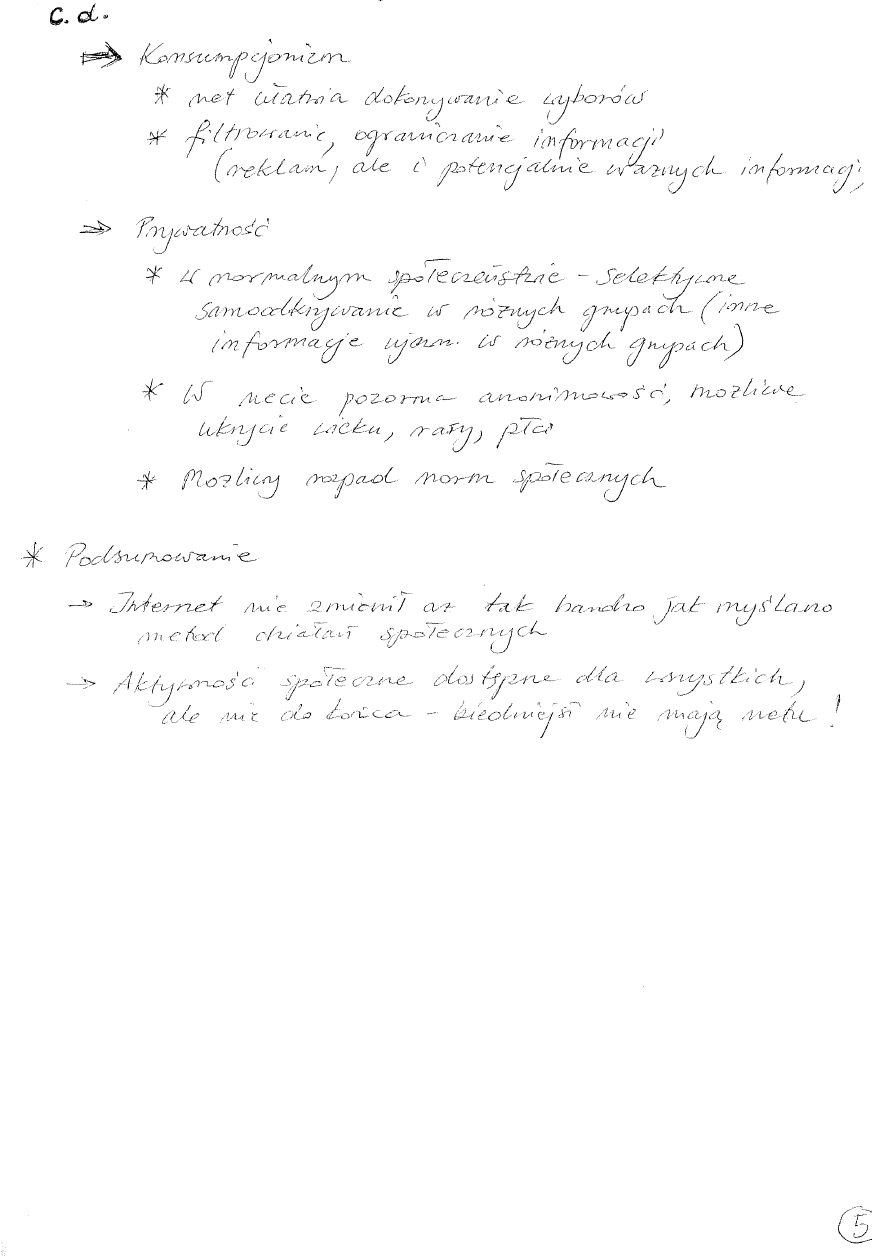 c. d.
⇒ Konsumpcjonizm
* net ułatwia dokonywanie wyborów
* filtrowanie, ograniczanie informacji
(reklam, ale i potencjalnie ważnych informacji
⇒ Prywatność
* w normalnym społeczeństwie – selektywne
samoodkrywanie w różnych grupach (inne
informacje ujawn. w różnych grupach)
* W necie pozorna anonimowość, możliwe
ukrycie wieku, rasy, płci
* Możliwy rozpad norm społecznych
* Podsumowanie
→ Internet nie zmienił aż tak bardzo jak myślano
metod działań społecznych
→ Aktywności społeczne dostępne dla wszystkich,
ale nie do końca – biedniejsi nie mają netu!
5